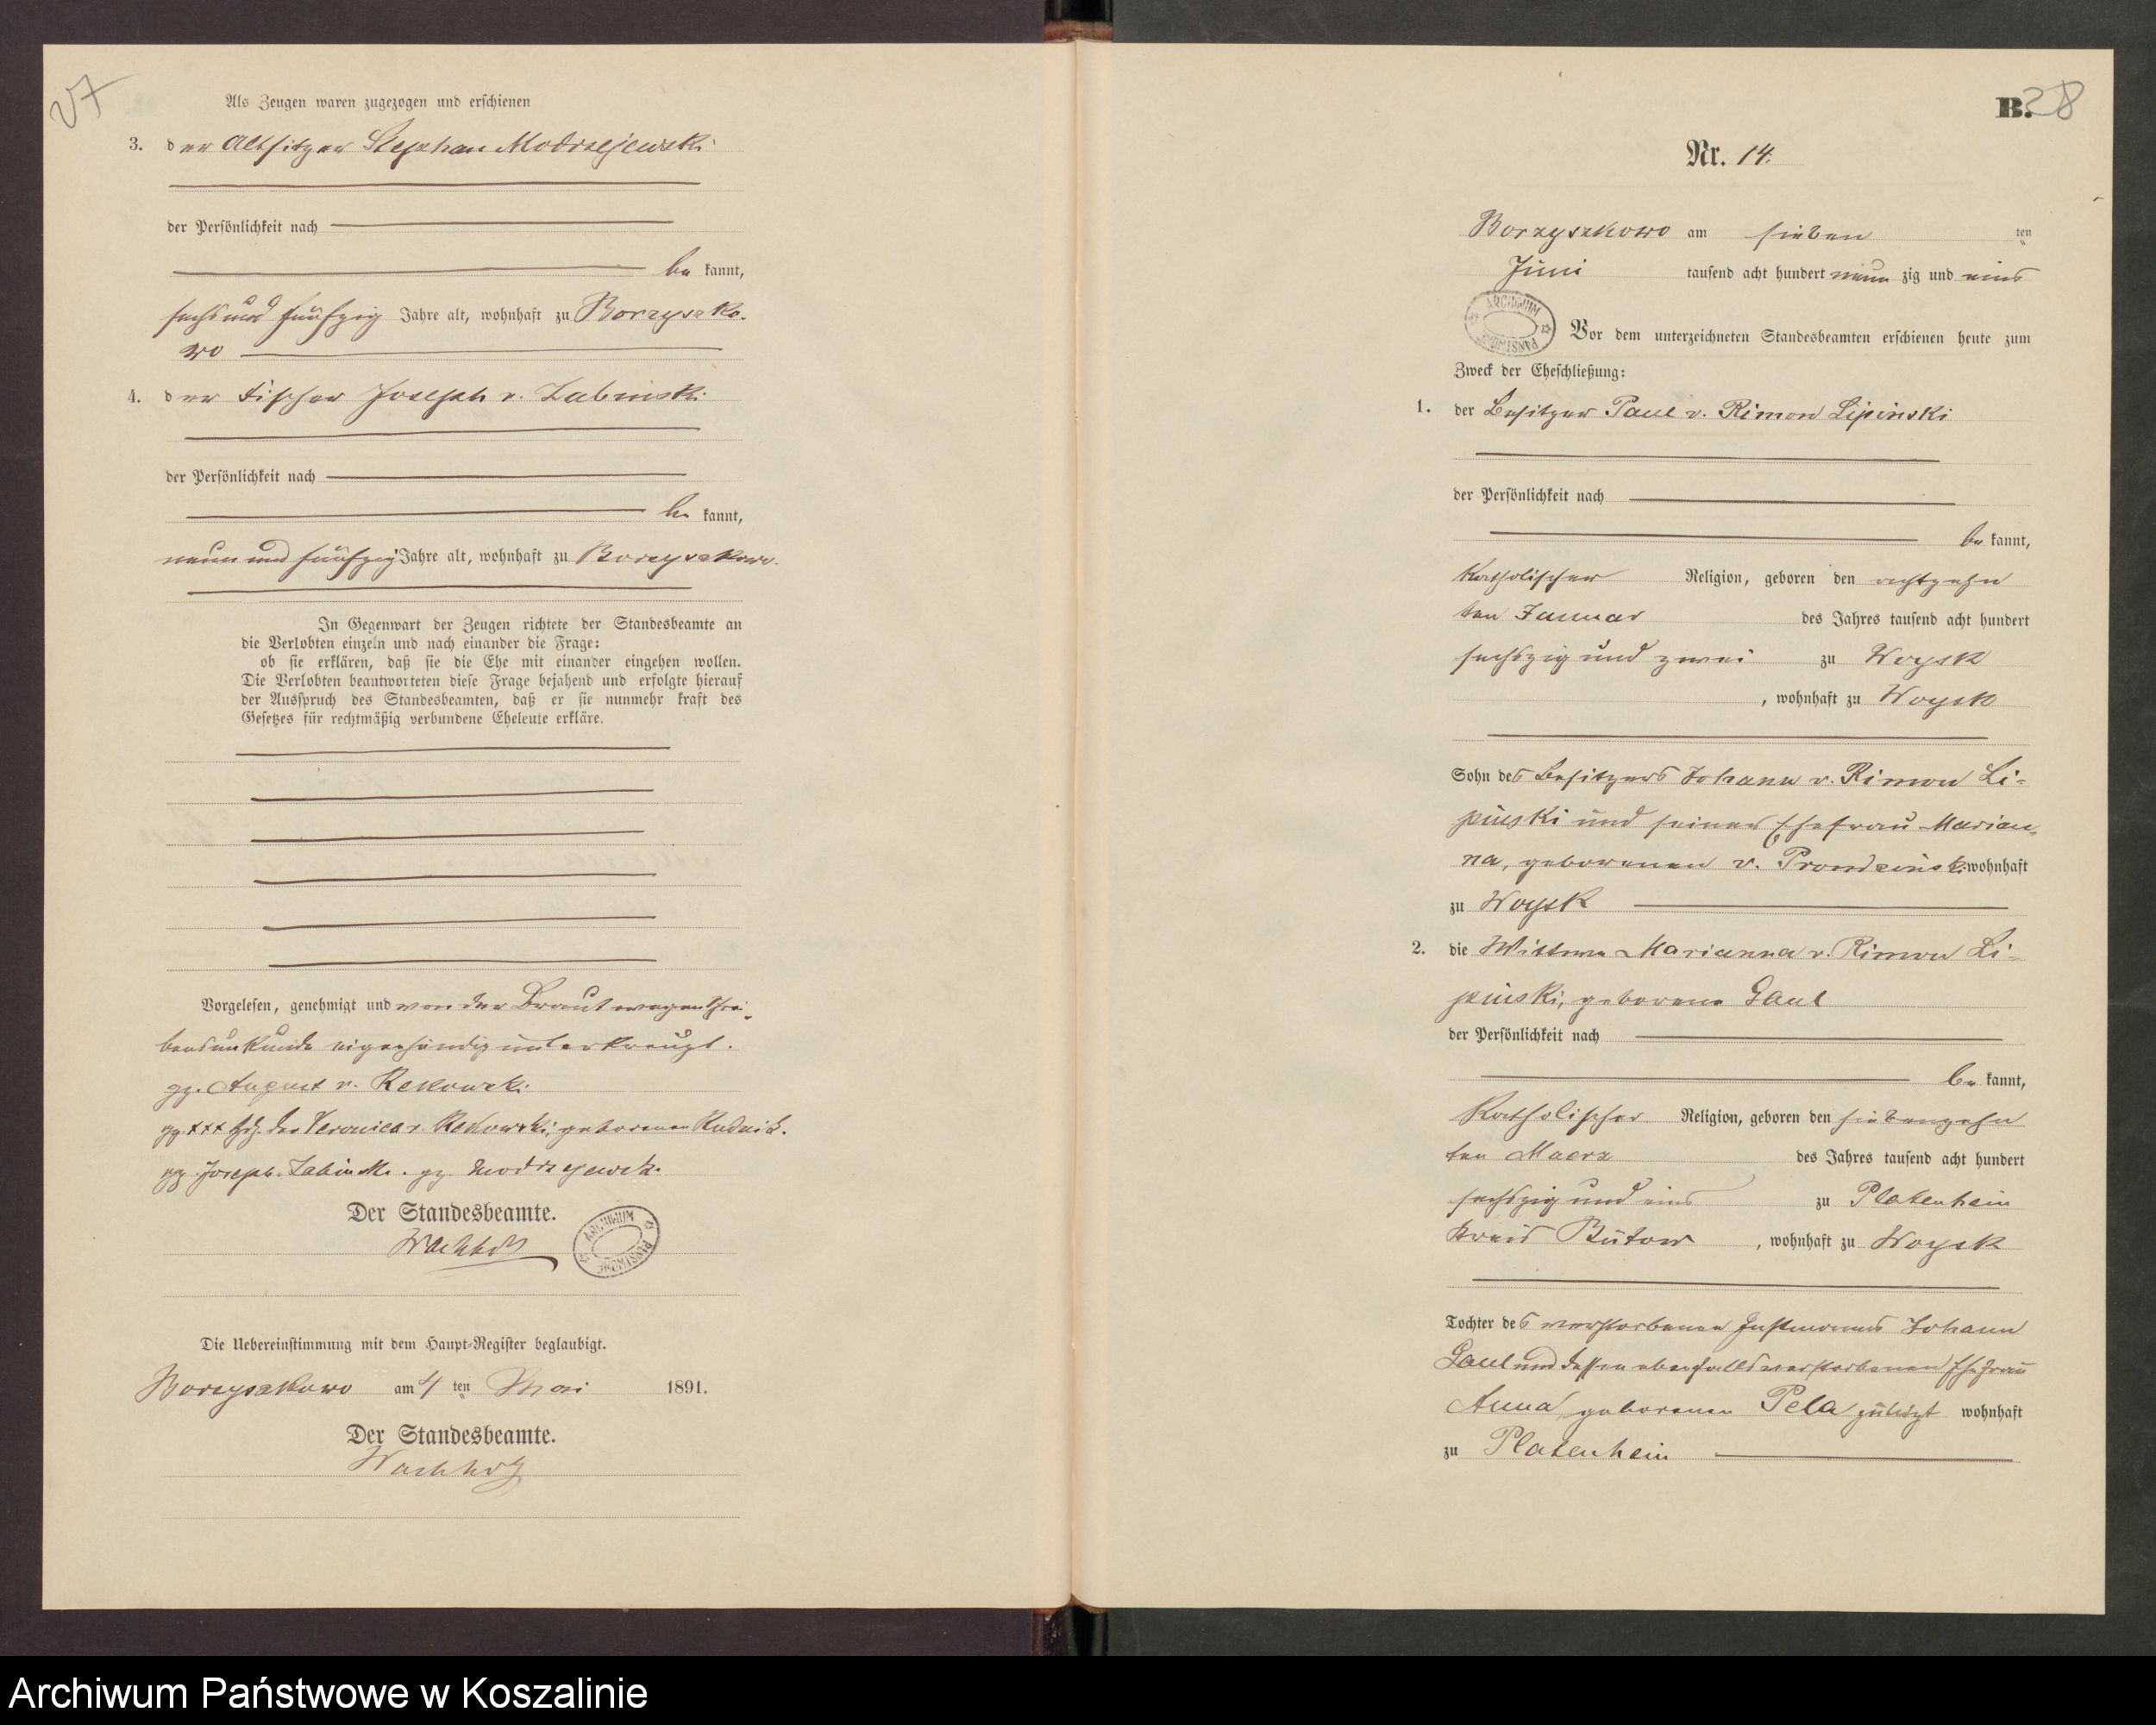 27
Als Zeugen waren zugezogen und erschienen
3. der Altsitzer Stephan Modrzejewski
der Persönlichkeit nach
be kannt,
sechs und fünfzig Jahre alt, wohnhaft zu Borzyszko-
wo
4. der Fischer Joseph v. Zabinski
der Persönlichkeit nach
be kannt,
neun und fünfzig Jahre alt, wohnhaft zu Borzyszkowo.
In Gegenwart der Zeugen richtete der Standesbeamte an
die Verlobten einzeln und nach einander die Frage:
ob sie erklären, daß sie die Ehe mit einander eingehen wollen.
Die Verlobten beantworteten diese Frage bejahend und erfolgte hierauf
der Ausspruch des Standesbeamten, daß er sie nunmehr kraft des
Gesetzes für rechtmäßig verbundene Eheleute erkläre.
Vorgelesen, genehmigt und von der Braut wegen Schrei-
bensunkunde eigenhändig unterkreuzt.
gz. August v. Rekowski
gz. xxx Hdz. der Veronica v. Rekowski, geborenen Rudnick.
gz. Joseph Zabinski. gz. Modrzejewski
Der Standesbeamte.
Wachholz
ARCHIWUM PAŃSTWOWE
Die Uebereinstimmung mit dem Haupt-Register beglaubigt.
Borzyszkowo am 4 ten Mai 1891.
Der Standesbeamte.
Wachholz
B. 28
Nr. 14.
Borzyszkowo am sieben ten
Juni tausend acht hundert neun zig und eins
ARCHIWUM PAŃSTWOWE
Vor dem unterzeichneten Standesbeamten erschienen heute zum
Zweck der Eheschließung:
1. der Besitzer Paul v. Rimon Lipinski
der Persönlichkeit nach
be kannt,
katholischer Religion, geboren den achtzehn
ten Januar des Jahres tausend acht hundert
sechszig und zwei zu Woysk
, wohnhaft zu Woysk
Sohn des Besitzers Johann v. Rimon Li-
pinski und seiner Ehefrau Marian-
na, geborenen v. Prondzinski wohnhaft
zu Woysk
2. die Wittwe Marianna v. Rimon Li-
pinski, geborene Gaul
der Persönlichkeit nach
be kannt,
katholischer Religion, geboren den siebenzehn
ten Maerz des Jahres tausend acht hundert
sechszig und eins zu Platenhein
Kreis Bütow , wohnhaft zu Woysk
Tochter des verstorbenen Instmanns Johann
Gaul und dessen ebenfalls verstorbenen Ehefrau
Anna, geborenen Pela zuletzt wohnhaft
zu Platenhein
Archiwum Państwowe w Koszalinie